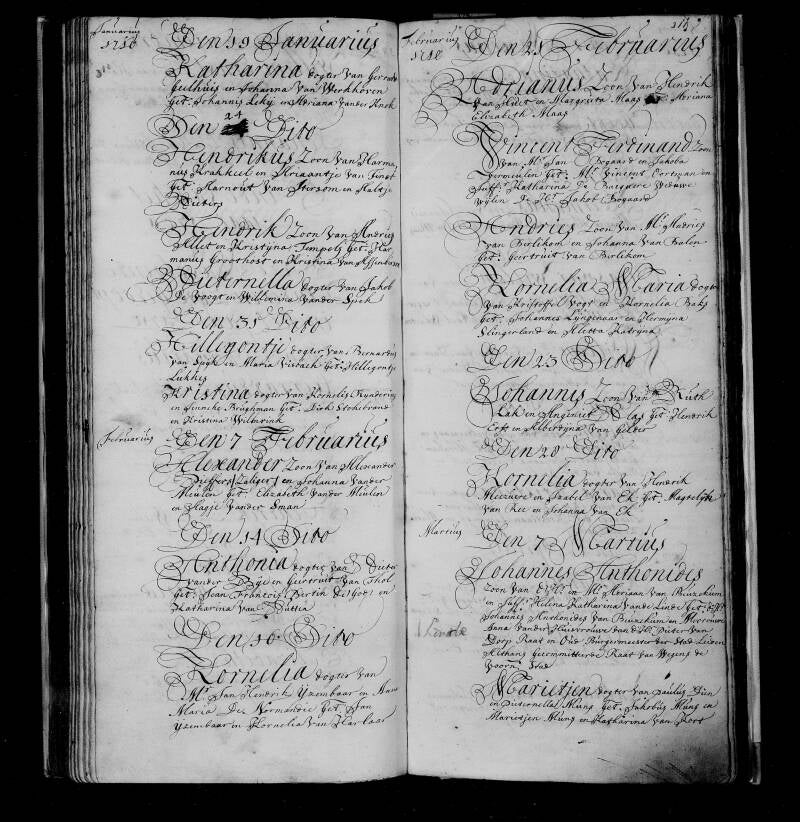 Januarius
1718
Den 19 Januarius
Katharina dogter van Gerrit
Geelhuis en Johanna van Werkhoven
Get. Johannis Leky en Adriana vander Knoh
24
Den Dito
Hendrikus Zoon van Harma
nus Krakkeel en Ariaantje van
Get. Harnout van Stersom en
Pieters
Hendrik Zoon van Andries
Allet en Kristyna Tempels Get. Har
manus Groothost en Kristina van Assenburn
Pieternella dogter van Jakob
de Voogt en Willemina vander Spek
Den 31 Dito
Hillegontje dogter van Bernardus
van Spyk en Maria Visbach Get. Hillegontje
Lukkes
Kristina dogter van Kornelis
en Jenneke Brughman Get. Dirk
en Kristina Wilmrink
Februarius
Den 7 Februarius
Alexander Zoon van Alexander
Zaliger en Johanna vander
Meulen Get. Elizabeth vander Meulen
en vander Sman
Den 14 Dito
Anthonia dogter van Pieter
vander en Geertruit van Thol
Get. Jean Francois Bertin de en
Katharina van
Den 16 Dito
Kornelia dogter van
Mr. Jan Hendrik Yzembaar en Anna
Maria De Normandie Get. Jan
Yzembaar en Kornelia van Harlaar
Februarius
1718
Den 21 Februarius
Adrianus Zoon van Hendrik
van Vliet en Margrieta Maas Adriana
Elizabeth Maas
Vincent Ferdinand Zoon
van Mr. Jan Bogaard en Jakoba
Vermeulen Get. Mr. Vincent Oortman en
Juffr. Katharina De Weduwe
Wylen De Hr. Jakob Bogaard
Andries Zoon van Mr. Andries
van Berlikom en Johanna van Halen
Get. Geertruit van Berlikom
Kornelia Maria dogter
van Kristoffel Vogt en Kornelia Baks
Get. Johannes Lyngenaar en Hermyna
Slingerland en Aletta Katryna
Den 23 Dito
Johannis Zoon van Ruth
Lak en Angeniet Klas Get. Hendrik
Coft en Albertyna van Gelter
Den 28 Dito
Kornelia dogter van Hendrik
en Izabel van Ek Get. Magtelyn
van Ree en Johanna van Ek
Martius
Den 7 Martius
Johannes Anthonides
Zoon van d'Hr. en Mr. Adriaan van Bruzekum
en Juffr. Helena Katharina vande Linde Get. d'Hr.
Johannis Anthonides van Bruzekum en Mevrouwe
Anna vander Huisvrouwe van d'Hr. Pieter van
Dorp Raat en Oud Burgermeester der Stad Leiden
Althans Gecommitteerde Raat van Wegens de
Voorn. Stad
Marietjen dogter van Paulus Dun
en Pieternella Mung Get. Jakobus Mung en
Marietjen Mung en Katharina van Kort